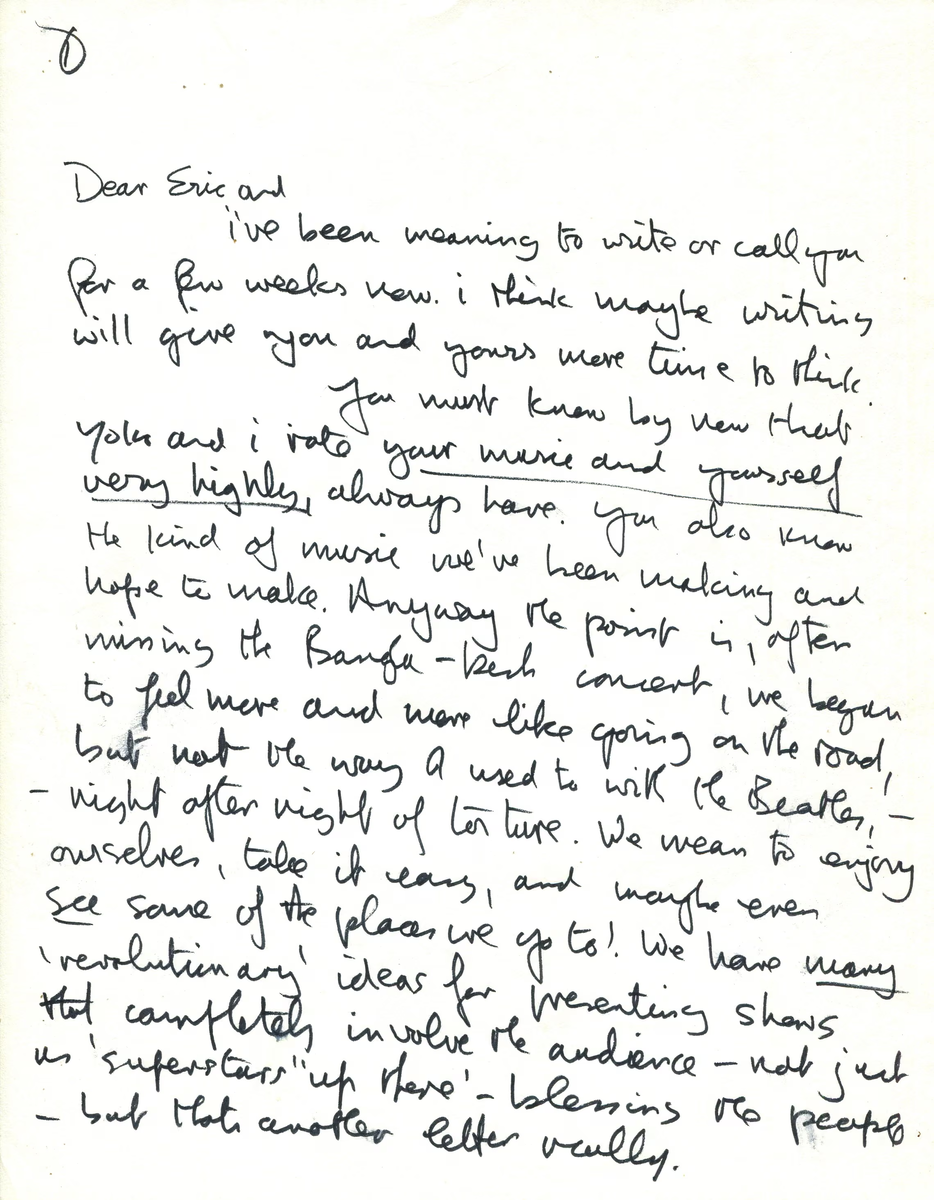 1
Dear Eric and
i've been meaning to write or call you
for a few weeks now. i think maybe writing
will give you and yours more time to think.
You must know by now that
Yoko and i rate your music and yourself
very highly, always have. You also know
the kind of music we've been making and
hope to make. Anyway the point is, after
missing the Bangla-Desh concert, we began
to feel more and more like going on the road,
but not the way I used to with the Beatles, -
- night after night of torture. We mean to enjoy
ourselves, take it easy, and maybe even
see some of the places we go to! We have many
'revolutionary' ideas for presenting shows
that completely involve the audience - not just
as 'superstars' 'up there' - blessing the people
- but thats another letter really.